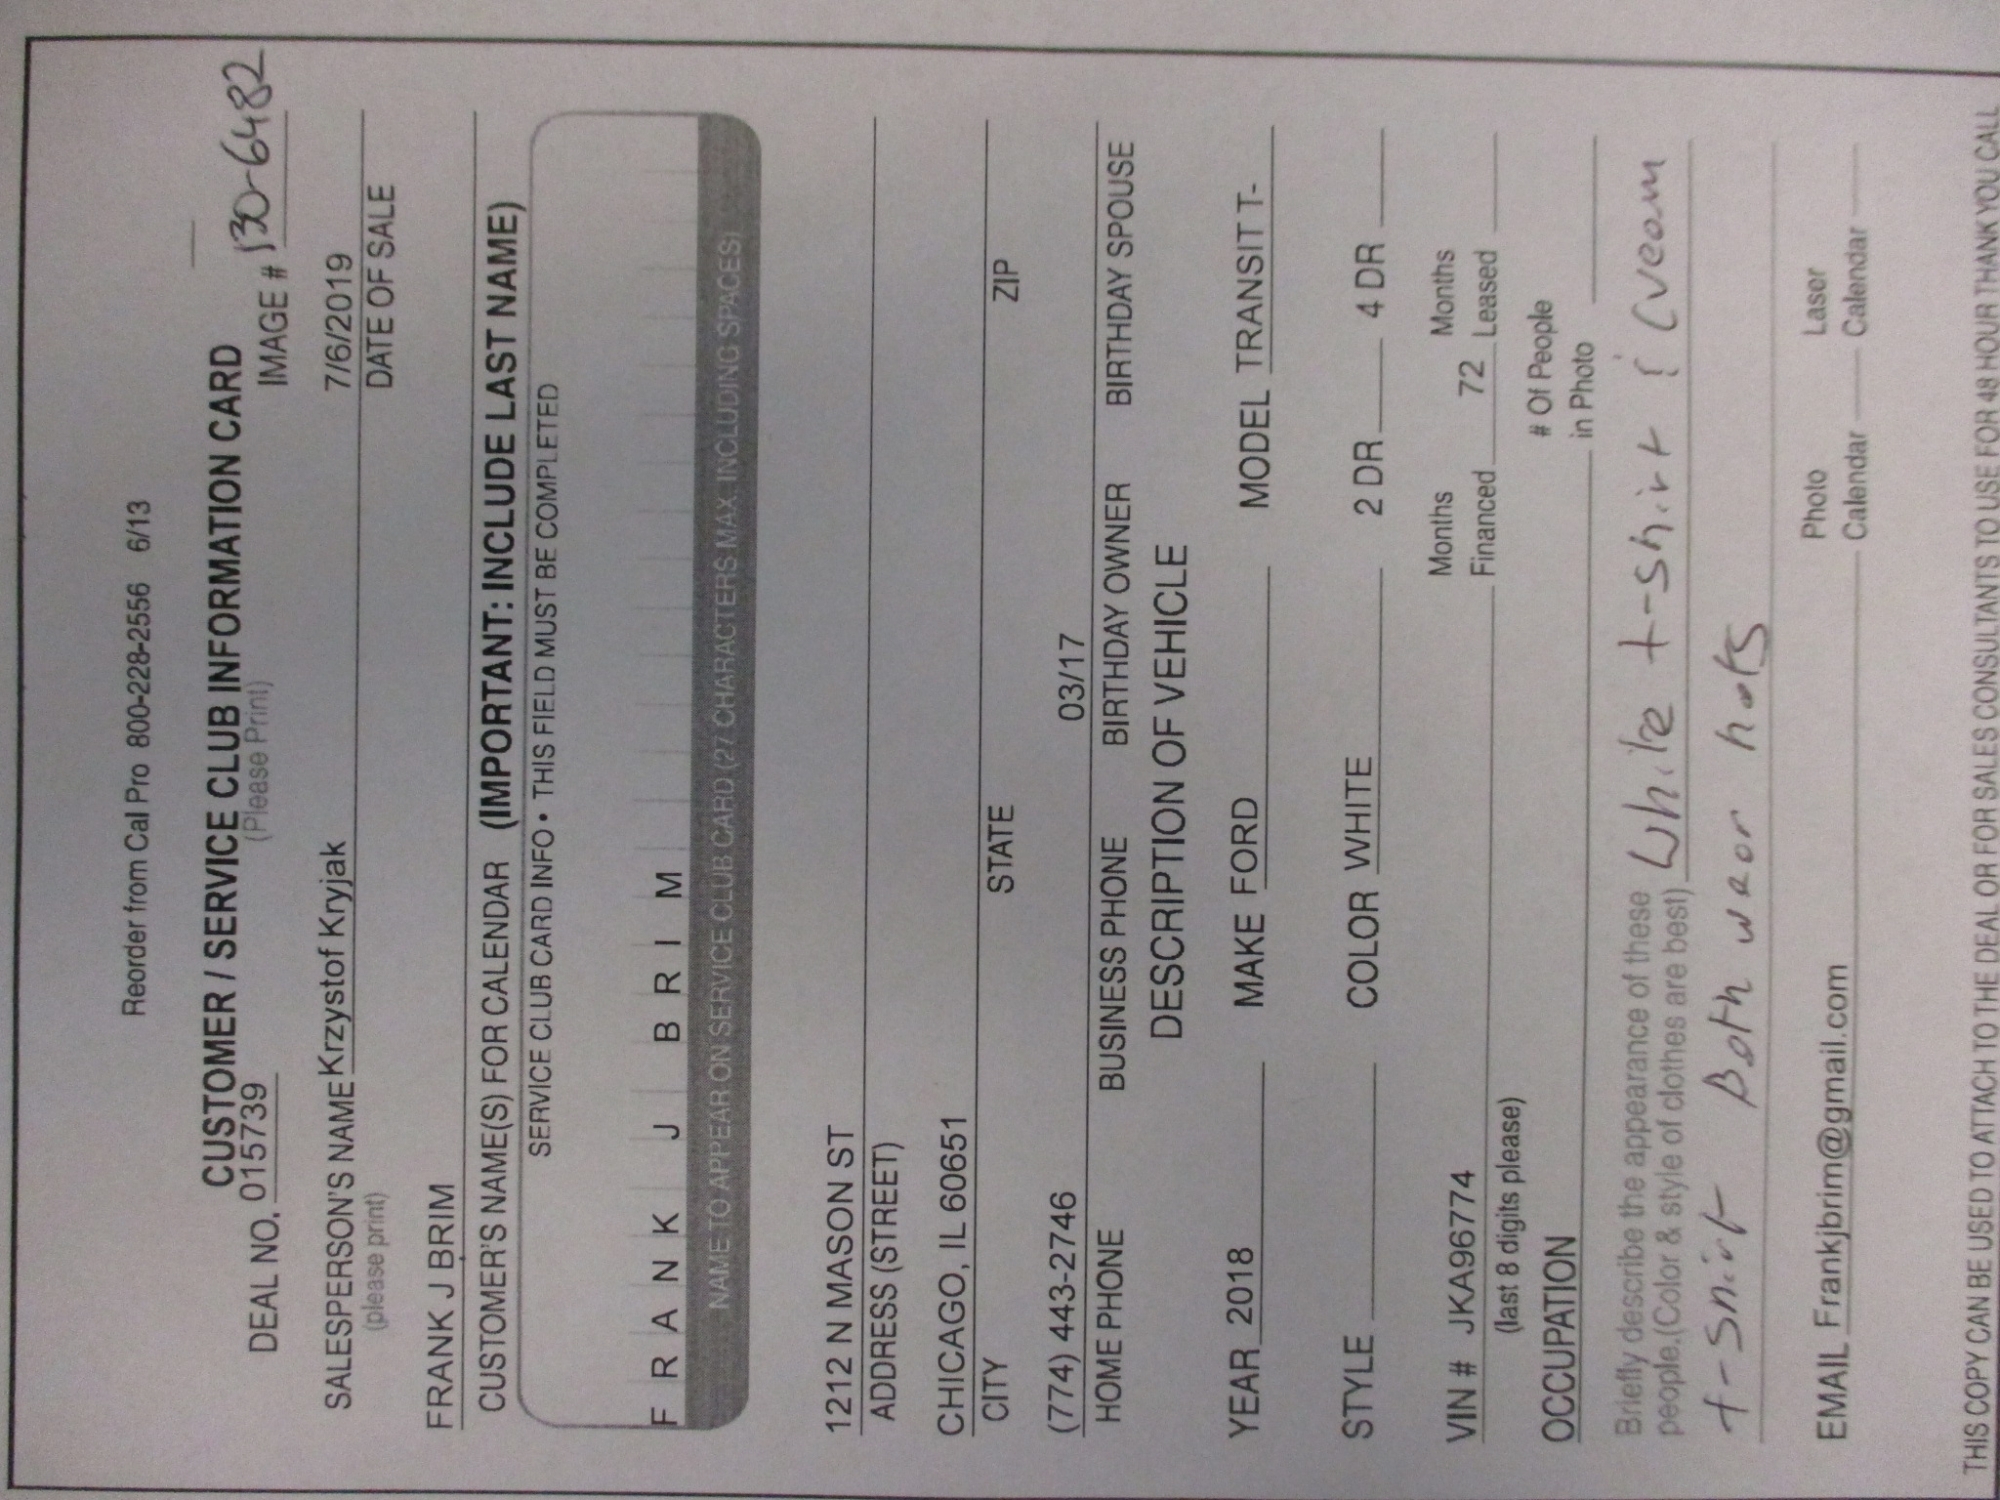 Reorder from Cal Pro 800-228-2556 6/13
CUSTOMER / SERVICE CLUB INFORMATION CARD
DEAL NO. 015739 (Please Print) IMAGE # 130-6482
SALESPERSON'S NAME Krzystof Kryjak 7/6/2019
(please print) DATE OF SALE
FRANK J BRIM
CUSTOMER'S NAME(S) FOR CALENDAR (IMPORTANT: INCLUDE LAST NAME)
SERVICE CLUB CARD INFO • THIS FIELD MUST BE COMPLETED
F R A N K J B R I M
NAME TO APPEAR ON SERVICE CLUB CARD (27 CHARACTERS MAX. INCLUDING SPACES)
1212 N MASON ST
ADDRESS (STREET)
CHICAGO, IL 60651
CITY STATE ZIP
(774) 443-2746 03/17
HOME PHONE BUSINESS PHONE BIRTHDAY OWNER BIRTHDAY SPOUSE
DESCRIPTION OF VEHICLE
YEAR 2018 MAKE FORD MODEL TRANSIT T-
STYLE COLOR WHITE 2 DR 4 DR
Months Months
VIN # JKA96774 Financed 72 Leased
(last 8 digits please)
# Of People
OCCUPATION in Photo
Briefly describe the appearance of these
people.(Color & style of clothes are best) White t-shirt & Cream
t-shirt Both wear hats
Photo Laser
EMAIL Frankjbrim@gmail.com Calendar Calendar
THIS COPY CAN BE USED TO ATTACH TO THE DEAL OR FOR SALES CONSULTANTS TO USE FOR 48 HOUR THANK YOU CALL